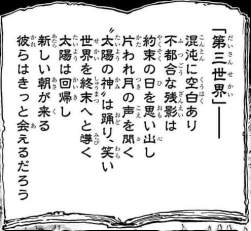 「第三世界」——
混沌に空白あり
不都合な残影は
約束の日を思い出し
片われ月の声を聞く
"太陽の神"は踊り、笑い
世界を終末へと導く
太陽は回帰し
新しい朝が来る
彼らはきっと会えるだろう